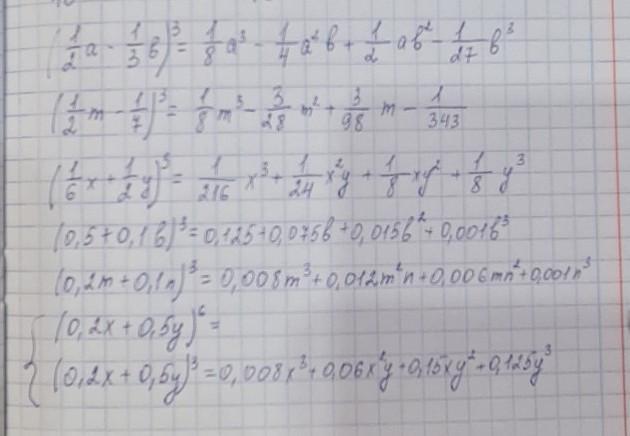 (1/2 a - 1/3 b)³ = 1/8 a³ - 1/4 a² b + 1/2 ab² - 1/27 b³
(1/2 m - 1/7)³ = 1/8 m³ - 3/28 m² + 3/98 m - 1/343
(1/6 x + 1/2 y)³ = 1/216 x³ + 1/24 x²y + 1/8 xy² + 1/8 y³
(0,5 + 0,1b)³ = 0,125 + 0,075b + 0,015b² + 0,001b³
(0,2m + 0,1n)³ = 0,008m³ + 0,012m²n + 0,006mn² + 0,001n³
(0,2x + 0,5y)⁶ =
(0,2x + 0,5y)³ = 0,008x³ + 0,06x²y + 0,15xy² + 0,125y³